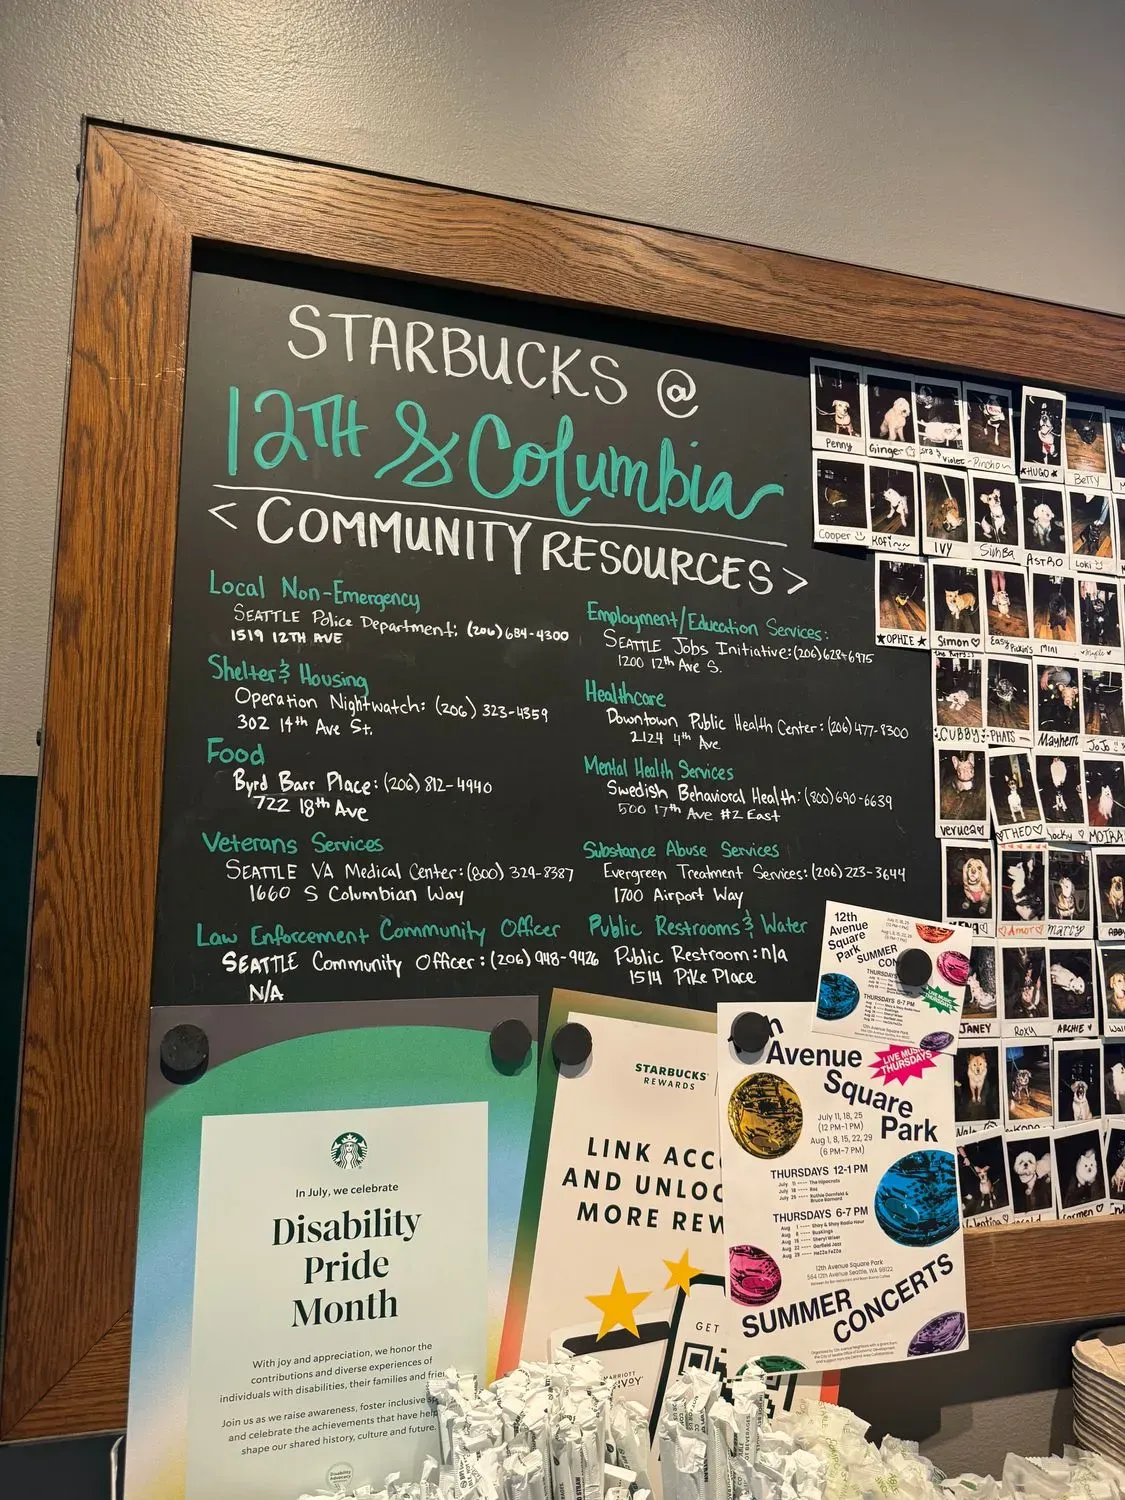 STARBUCKS @
12TH & Columbia
< COMMUNITY RESOURCES >
Local Non-Emergency
SEATTLE Police Department: (206) 684-4300
1519 12TH AVE
Shelter & Housing
Operation Nightwatch: (206) 323-4359
302 14th Ave St.
Food
Byrd Barr Place: (206) 812-4940
722 18th Ave
Veterans Services
SEATTLE VA Medical Center: (800) 329-8387
1660 S Columbian Way
Law Enforcement Community Officer
SEATTLE Community Officer: (206) 948-9426
N/A
Employment/Education Services:
SEATTLE Jobs Initiative: (206) 628-6975
1200 12th Ave S.
Healthcare
Downtown Public Health Center: (206) 477-8300
2124 4th Ave
Mental Health Services
Swedish Behavioral Health: (800) 690-6639
500 17th Ave #2 East
Substance Abuse Services
Evergreen Treatment Services: (206) 223-3644
1700 Airport Way
Public Restrooms & Water
Public Restroom: n/a
1514 Pike Place
Penny
Ginger
Violet
HUGO
Betty
Cooper
Kofi
IVY
Simba
ASTRO
Loki
OPHIE
Simon
Easy
Mini
CUBBY
PHATS
Mayhem
JoJo
Veruca
THEO
MOIRA
Amor
Marcy
JANEY
Roxy
ARCHIE
12th
Avenue
Square
Park
SUMMER
CON
THURSDAYS
THURSDAYS 6-7 PM
LIVE MUSIC
THURSDAYS
Avenue
Square
Park
LIVE MUSIC
THURSDAYS
July 11, 18, 25
(12 PM-1 PM)
Aug 1, 8, 15, 22, 29
(6 PM-7 PM)
THURSDAYS 12-1 PM
July 11 ---- The Hipocrats
July 18 ---- Roz
July 25 ---- Ruthie Dornfeld &
Bruce Barnard
THURSDAYS 6-7 PM
Aug 1 ---- Shay & Shay Radio Hour
Aug 8 ---- Buskings
Aug 15 ---- Sheryl Wiser
Aug 22 ---- Garfield Jazz
Aug 29 ---- HeZZa FeZZa
12th Avenue Square Park
564 12th Avenue Seattle, WA 98122
SUMMER
CONCERTS
STARBUCKS
REWARDS
LINK ACC
AND UNLOC
MORE REW
GET
In July, we celebrate
Disability
Pride
Month
With joy and appreciation, we honor the
contributions and diverse experiences of
individuals with disabilities, their families and
Join us as we raise awareness, foster inclusive
and celebrate the achievements that have
shape our shared history, culture and future.
Disability
Advocacy